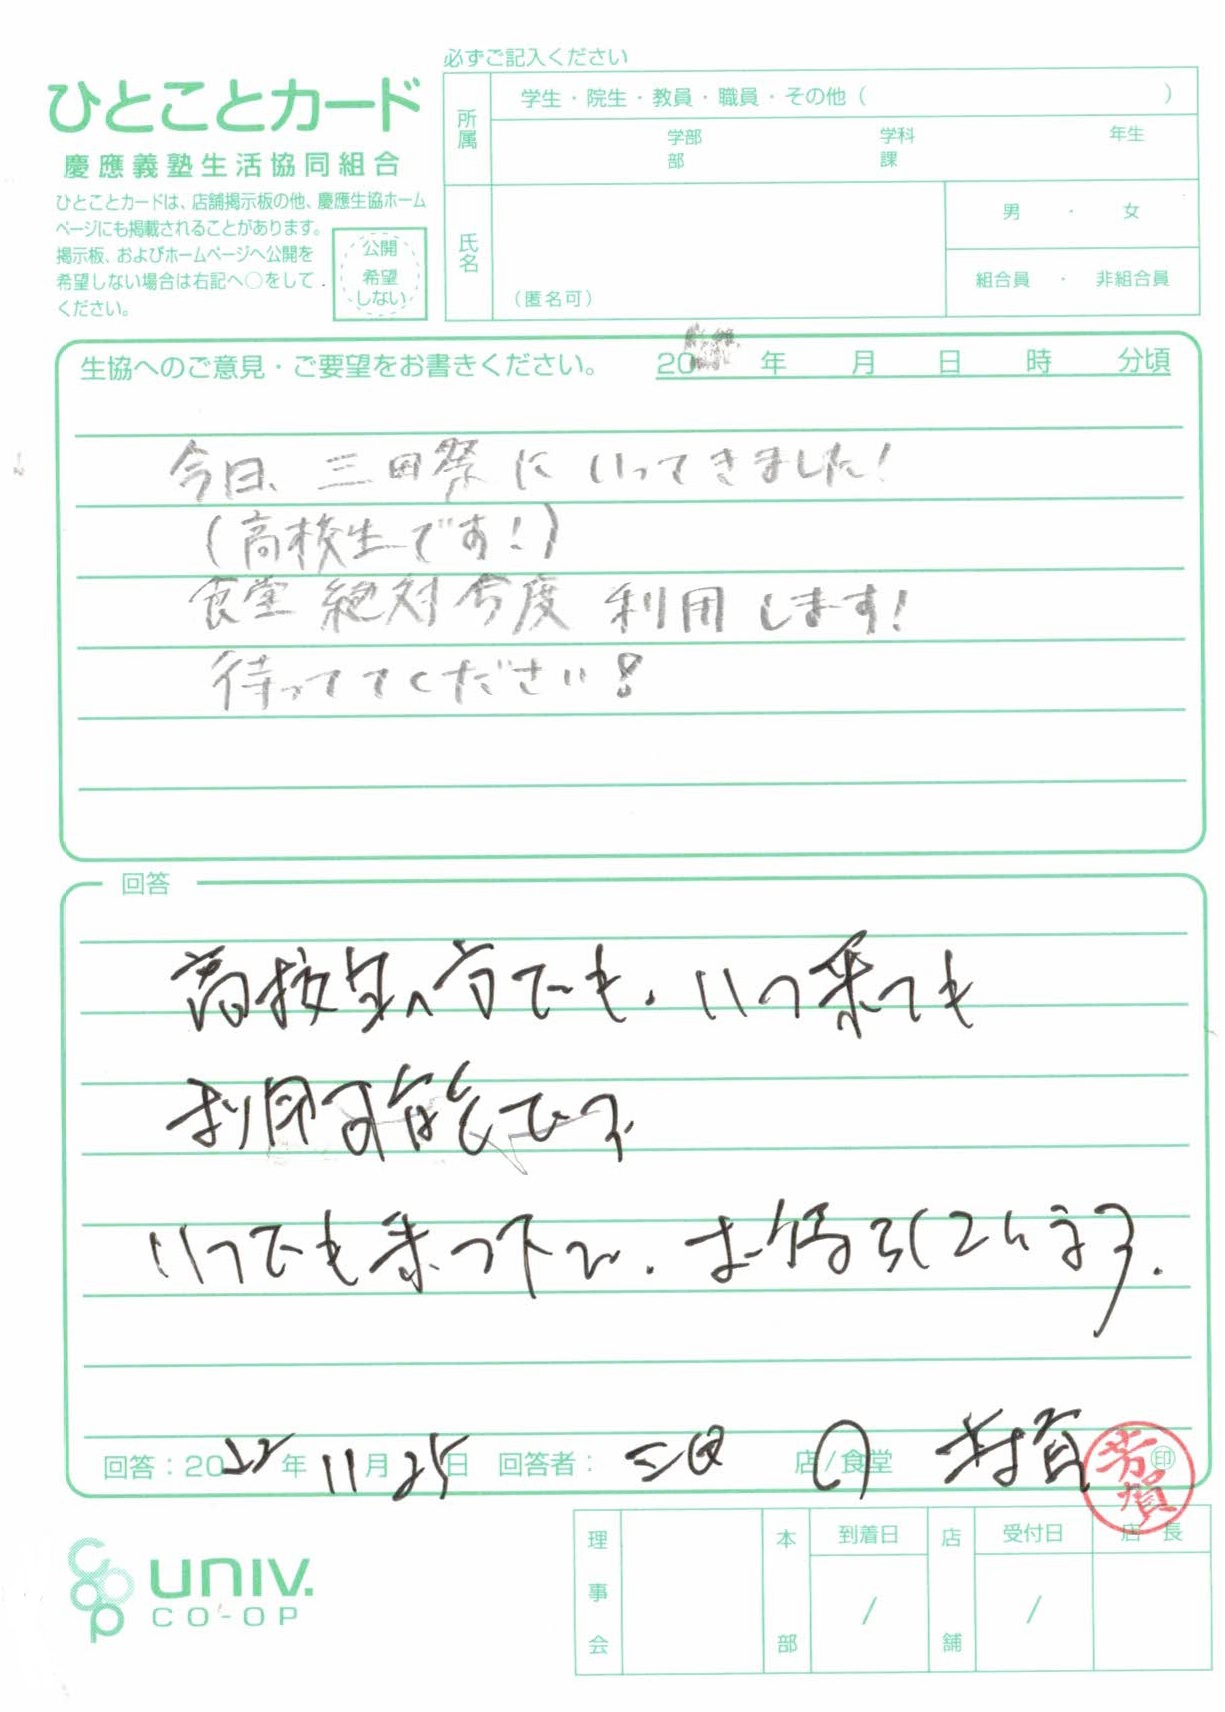 必ずご記入ください
ひとことカード
慶應義塾生活協同組合
ひとことカードは、店舗掲示板の他、慶應生協ホーム
ページにも掲載されることがあります。
掲示板、およびホームページへ公開を
希望しない場合は右記へ○をして
ください。
公開
希望
しない
所属
学生・院生・教員・職員・その他（ ）
学部 学科 年生
部 課
氏名
（匿名可）
男 ・ 女
組合員 ・ 非組合員
生協へのご意見・ご要望をお書きください。 20 年 月 日 時 分頃
今日、三田祭にいってきました!
(高校生です!)
食堂絶対今度利用します!
待っててください!
回答
高校生の方でも、いつ来ても
利用可能です
いつでも来って下さい。お待ちしています。
回答：2022年11月25日 回答者： 三田 店/食堂 芳賀
芳賀
印
理事会
本部
到着日
/
店舗
受付日
/
店長
UNIV.
CO-OP